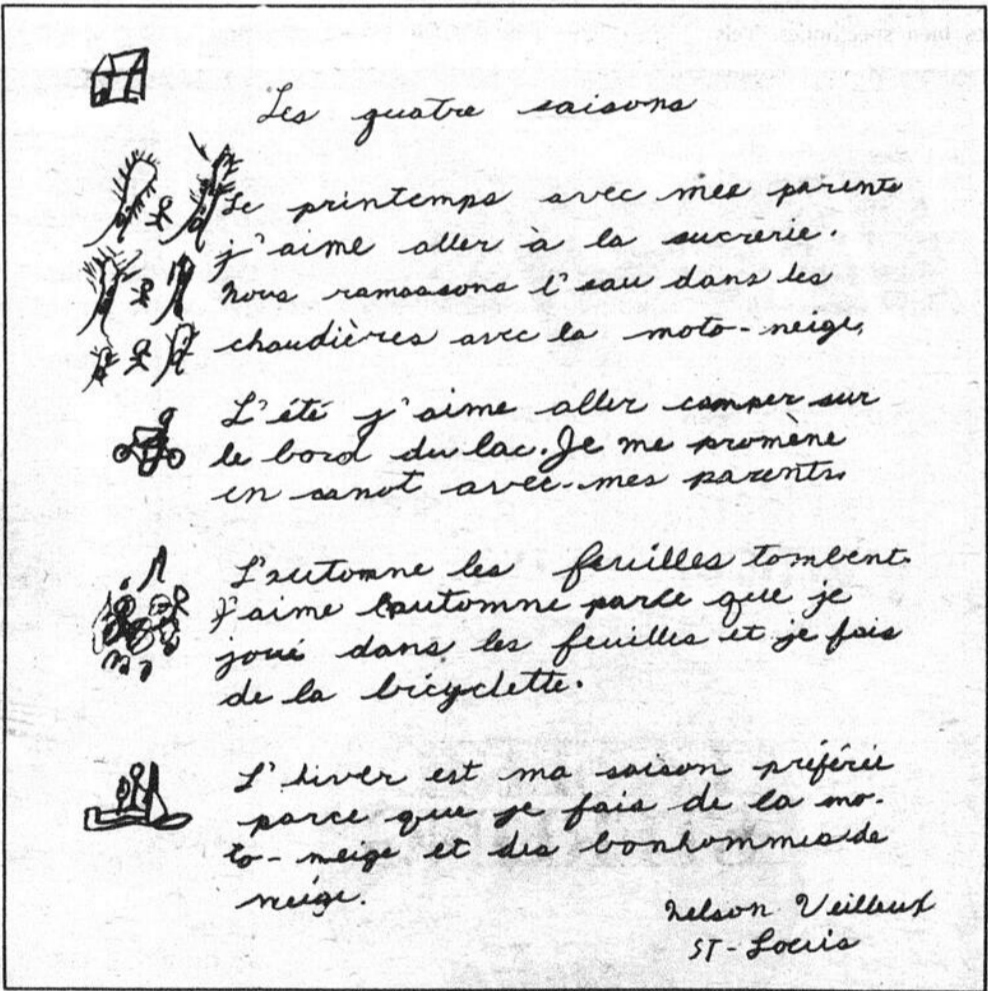 Les quatre saisons
Le printemps avec mes parents
j'aime aller à la sucrerie.
Nous ramassons l'eau dans les
chaudières avec la moto-neige.
L'été j'aime aller camper sur
le bord du lac. Je me promène
en canot avec mes parents.
L'automne les feuilles tombent.
J'aime l'automne parce que je
joue dans les feuilles et je fais
de la bicyclette.
L'hiver est ma saison préférée
parce que je fais de la mo-
to-neige et des bonhommes de
neige.
Nelson Veilleux
ST-Louis